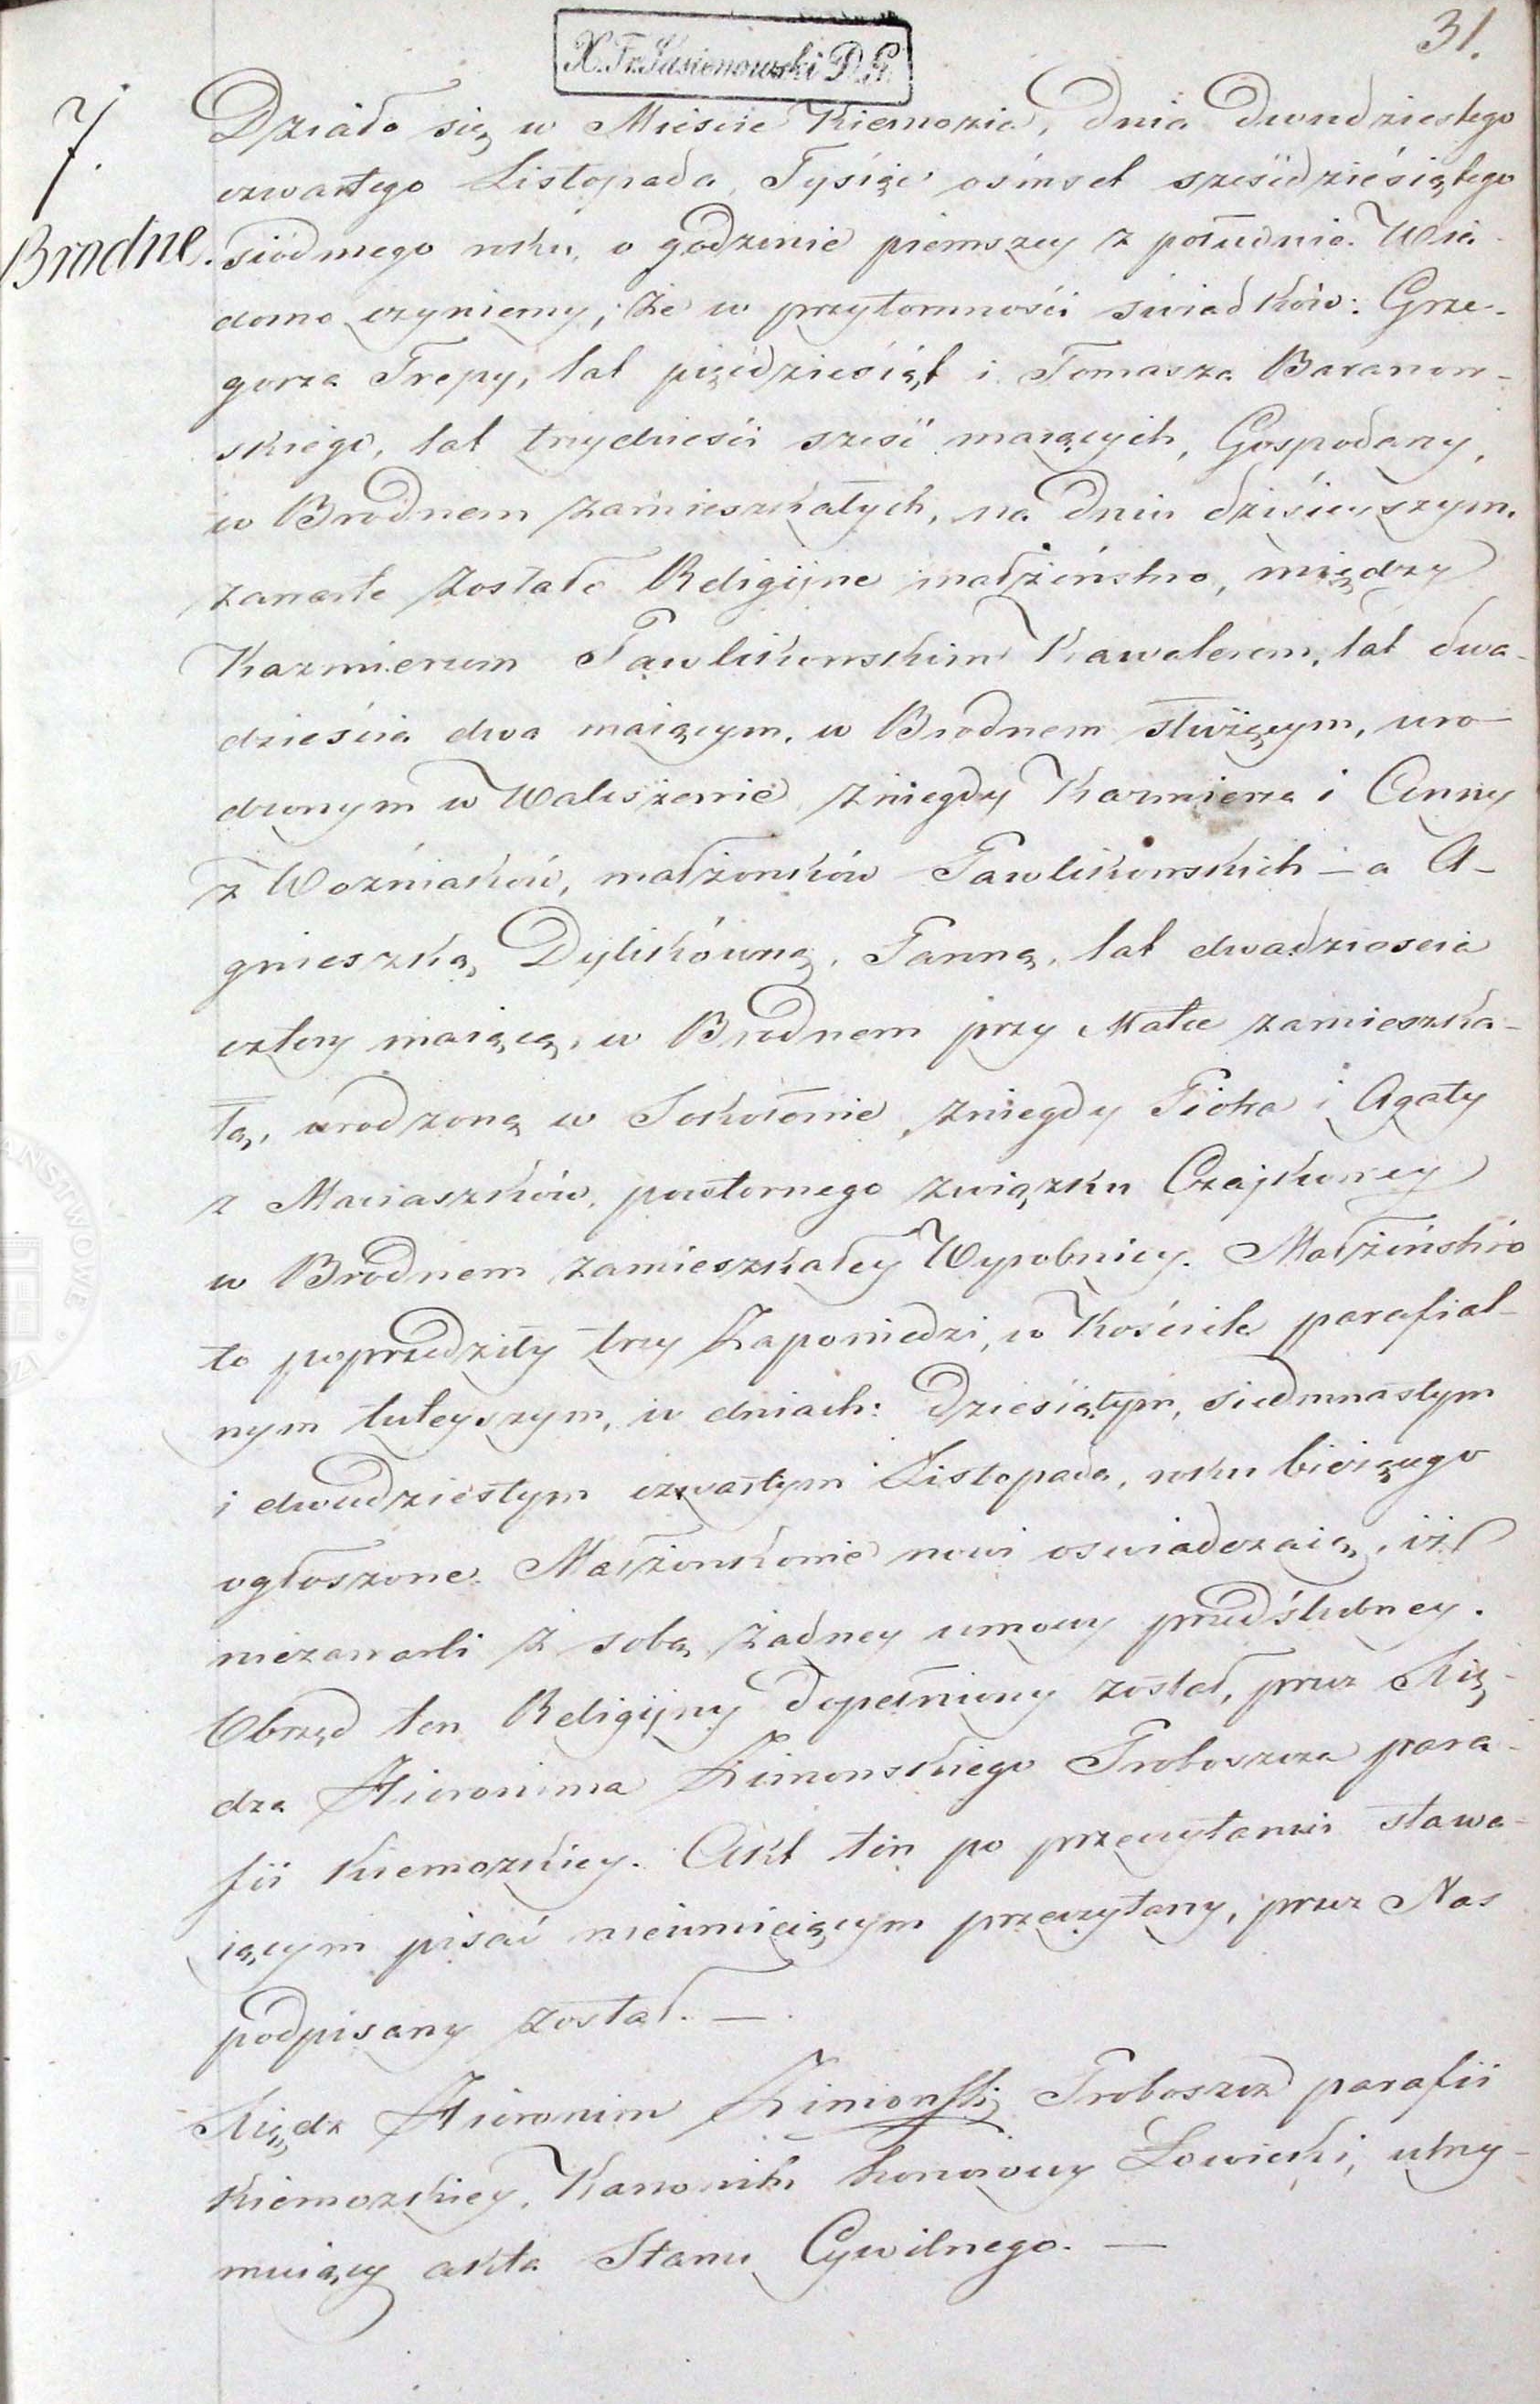 31.
X. Fr. Jasionowski D. G.
7.
Brodne.
Działo się w Mieście Kiernozia, dnia dwudziestego
czwartego Listopada, Tysiąc ośmset sześćdziesiątego
siódmego roku, o godzinie pierwszey z południa. Wia-
domo czyniemy, że w przytomności świadków: Grze-
gorza Trepy, lat pięćdziesiąt i Tomasza Baranow-
skiego, lat trzydzieści sześć maiących, Gospodarzy,
w Brodnem zamieszkałych, na dniu dzisieyszym,
zawarte zostało Religijne małżeństwo, między
Kazmierzem Pawlikowskim Kawalerem, lat dwa-
dzieścia dwa maiącym, w Brodnem służącym, uro-
dzonym w Waliszewie z niegdy Kazmierza i Anny
z Woźniaków, małżonków Pawlikowskich – a A-
gnieszką Dylikówną, Panną, lat dwadzieścia
cztery maiącą, w Brodnem przy Matce zamieszka-
łą, urodzoną w Sokołowie z niegdy Piotra i Agaty
z Maciaszków, powtornego związku Czajkowey
w Brodnem zamieszkałey Wyrobnicy. Małżeństwo
to poprzedziły trzy Zapowiedzi, w Kościele parafial-
nym tuteyszym, w dniach: dziesiątym, siedmnastym
i dwudziestym czwartym Listopada, roku bieżącego
ogłoszone. Małżonkowie nowi oswiadczaią, iż
niezawarli z sobą żadney umowy przedślubney.
Obrzęd ten Religijny dopełniony został, przez Xię-
dza Hieronima Zimowskiego Proboszcza para-
fii Kiernozkiey. Akt ten po przeczytaniu stawa-
iącym pisać nieumieiącym przeczytany, przez Nas
podpisany został. —
Xiądz Hieronim Zimowski Proboszcz parafii
Kiernozkiey, Kanonik honorowy Łowicki, utrzy-
muiący akta Stanu Cywilnego. —